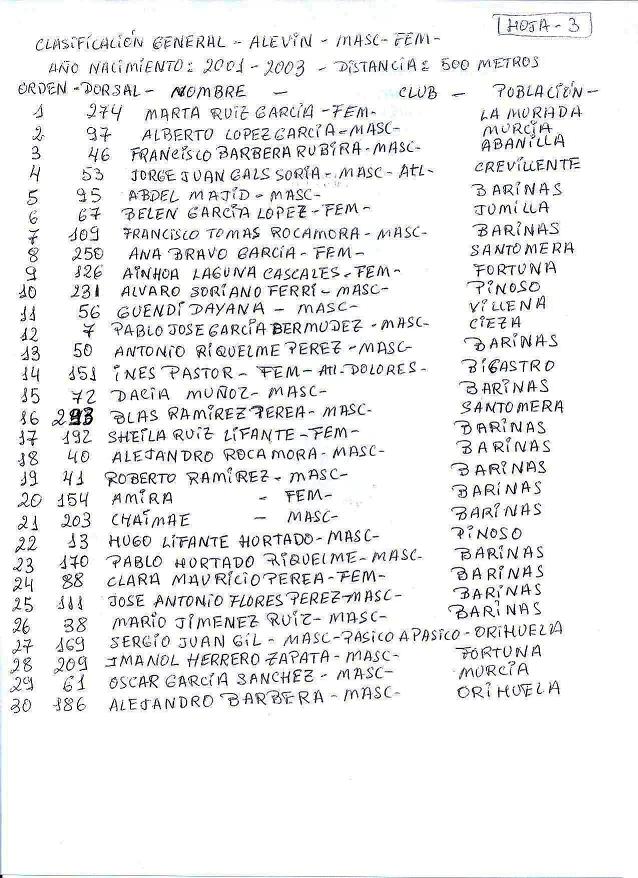 HOJA - 3
CLASIFICACIÓN GENERAL - ALEVIN - MASC-FEM-
AÑO NACIMIENTO: 2001 - 2003 - DISTANCIA: 500 METROS
ORDEN - DORSAL - NOMBRE - CLUB - POBLACIÓN -
1 274 MARTA RUIZ GARCÍA - FEM- LA MURADA
2 97 ALBERTO LOPEZ GARCÍA - MASC- MURCIA
3 46 FRANCISCO BARBERA RUBIRA - MASC- ABANILLA
4 53 JORGE JUAN GALS SORIA - MASC- Atl- CREVILLENTE
5 95 ABDEL MAJID - MASC- BARINAS
6 67 BELEN GARCÍA LOPEZ - FEM- JUMILLA
7 109 FRANCISCO TOMAS ROCAMORA - MASC- BARINAS
8 250 ANA BRAVO GARCÍA - FEM- SANTOMERA
9 126 AINHOA LAGUNA CASCALES - FEM- FORTUNA
10 231 ALVARO SORIANO FERRI - MASC- PINOSO
11 56 GUENDI DAYANA - MASC- VILLENA
12 7 PABLO JOSE GARCÍA BERMUDEZ - MASC- CIEZA
13 50 ANTONIO RIQUELME PEREZ - MASC- BARINAS
14 151 INES PASTOR - FEM- Atl- DOLORES - BIGASTRO
15 72 DACIA MUÑOZ - MASC- BARINAS
16 293 BLAS RAMIREZ PEREA - MASC- SANTOMERA
17 192 SHEILA RUIZ LIFANTE - FEM- BARINAS
18 40 ALEJANDRO ROCAMORA - MASC- BARINAS
19 41 ROBERTO RAMIREZ - MASC- BARINAS
20 154 AMIRA - FEM- BARINAS
21 203 CHAIMAE - MASC- BARINAS
22 13 HUGO LIFANTE HORTADO - MASC- PINOSO
23 170 PABLO HORTADO RIQUELME - MASC- BARINAS
24 88 CLARA MAURICIO PEREA - FEM- BARINAS
25 111 JOSE ANTONIO FLORES PEREZ - MASC- BARINAS
26 38 MARIO JIMENEZ RUIZ - MASC- BARINAS
27 169 SERGIO JUAN GIL - MASC - PASICO A PASICO - ORIHUELA
28 209 IMANOL HERRERO ZAPATA - MASC- FORTUNA
29 61 OSCAR GARCÍA SANCHEZ - MASC- MURCIA
30 186 ALEJANDRO BARBERA - MASC- ORIHUELA